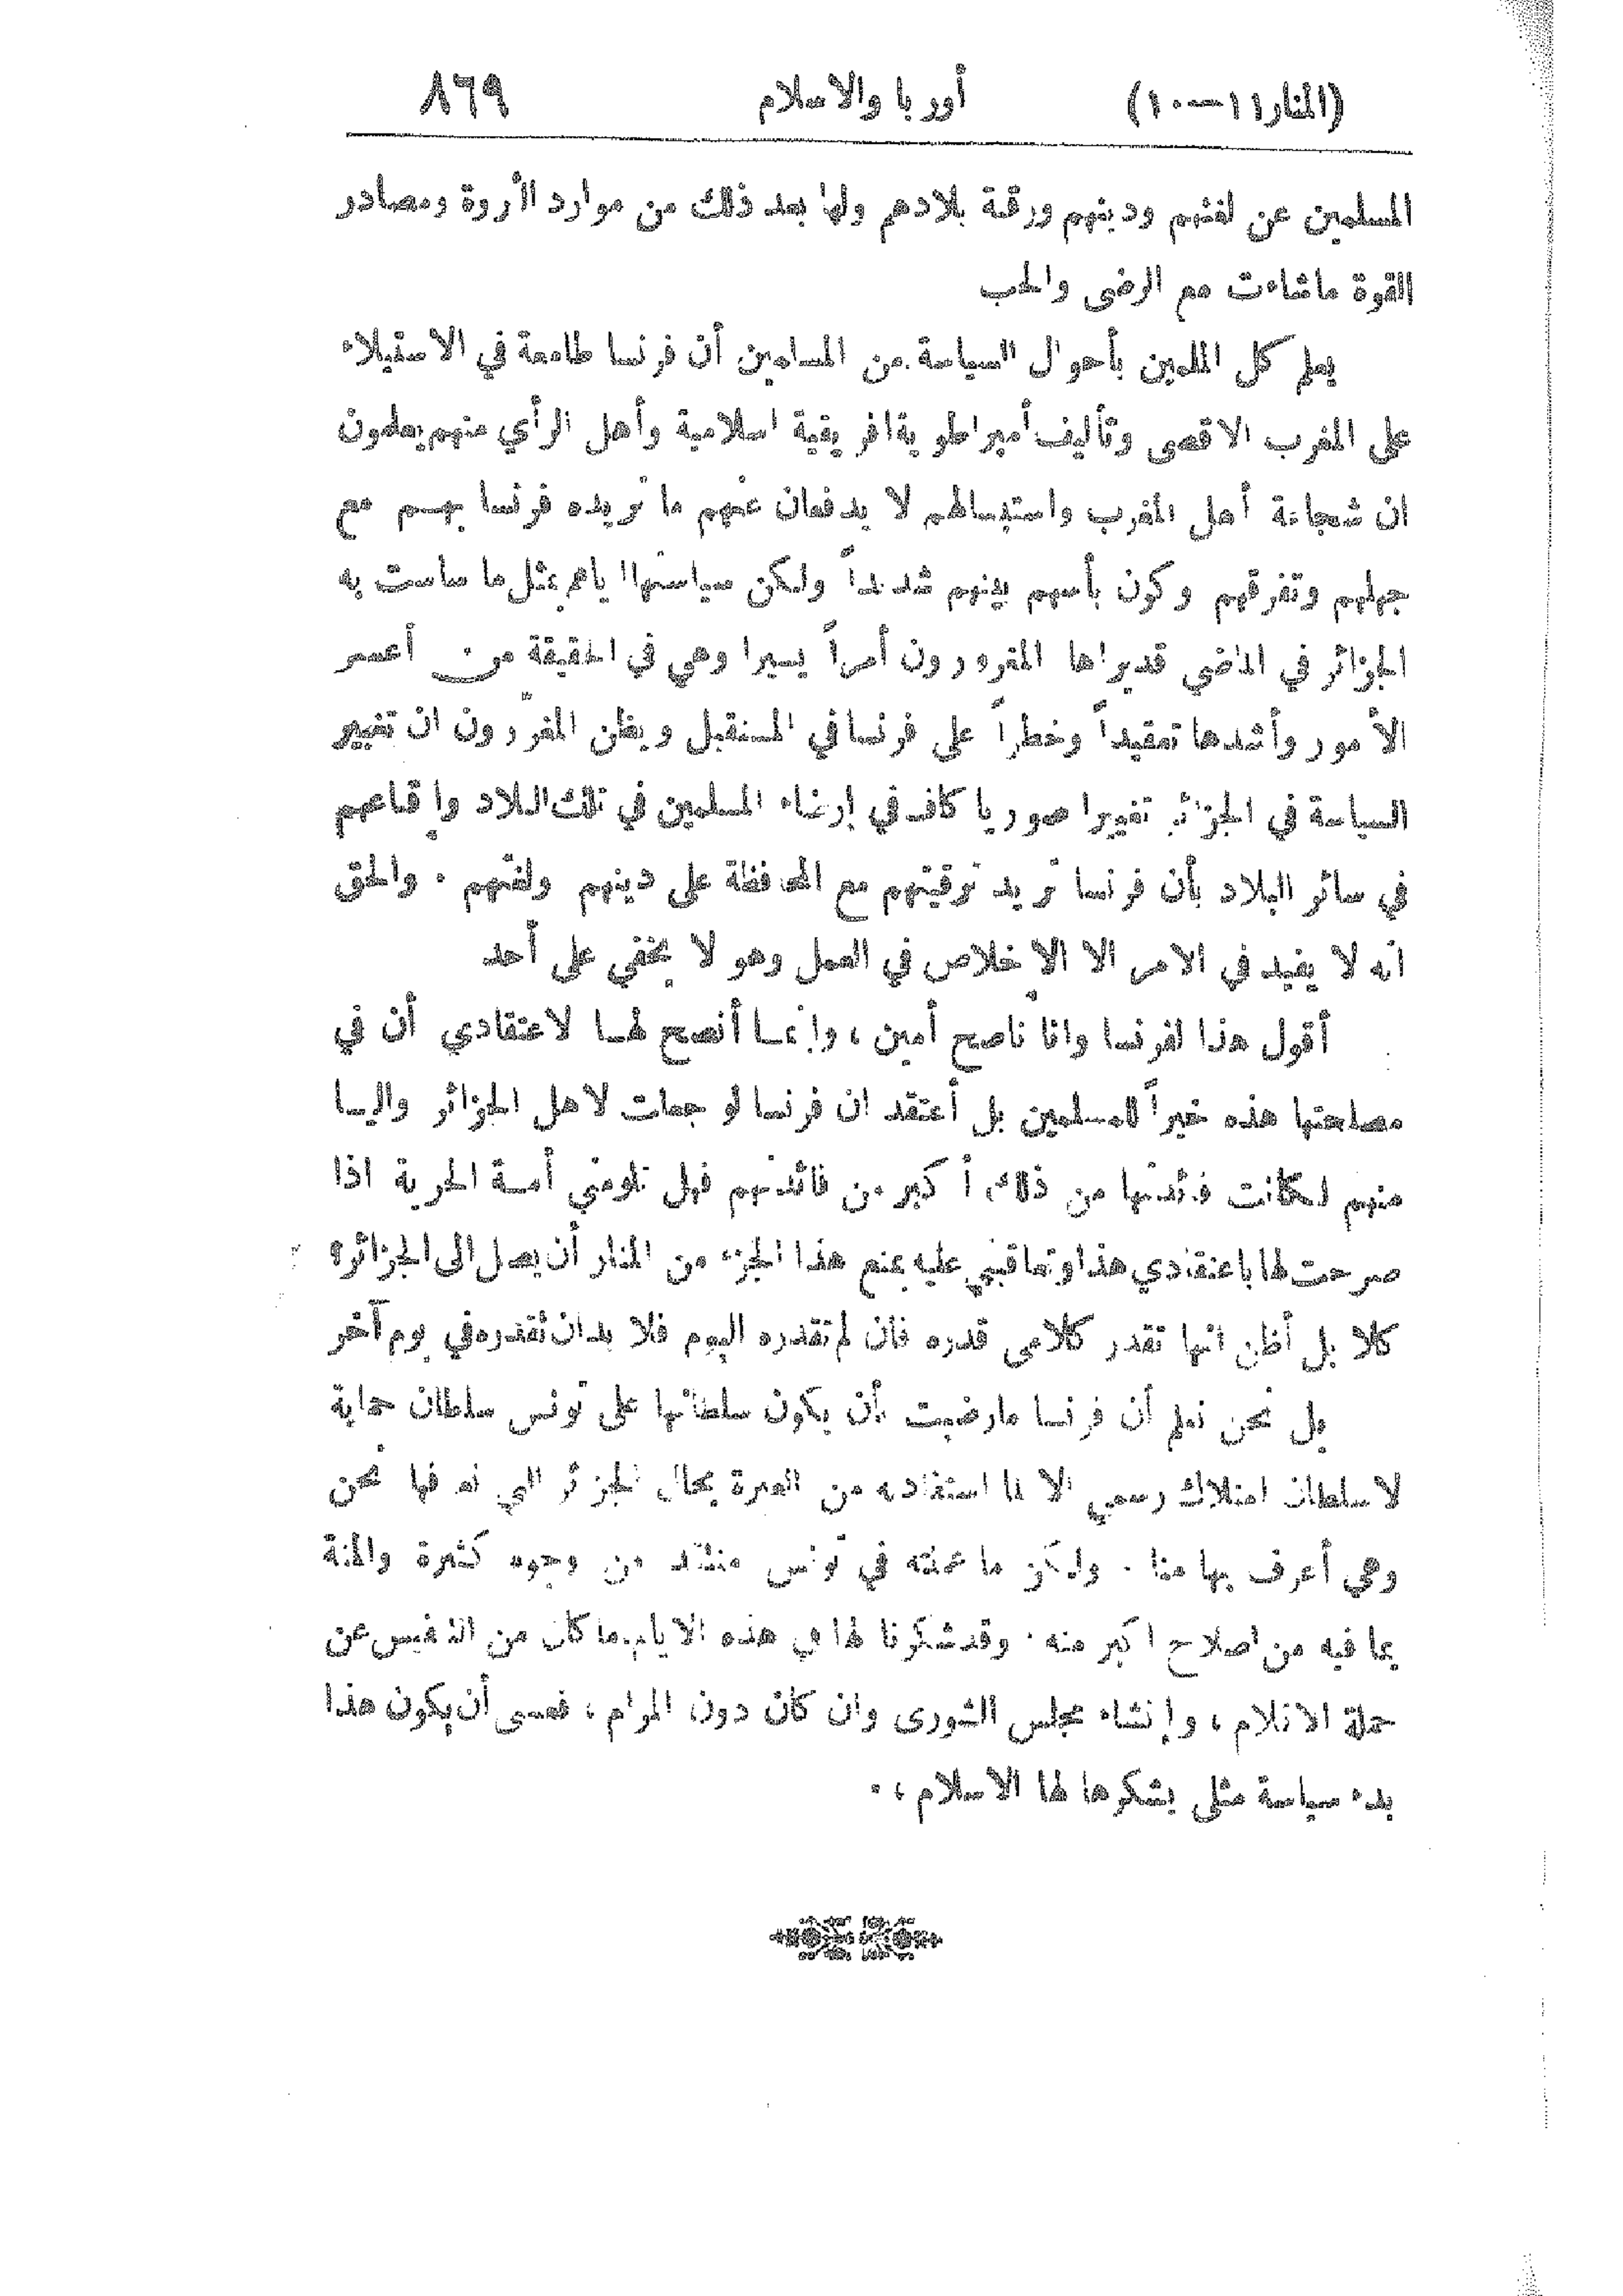 (المنار ١١—١٠) أوربا والاسلام ٨٦٩
المسلمين عن لغتهم ودينهم ورقبة بلادهم ولها بعد ذلك من موارد الثروة ومصادر
القوة ماشاءت مع الرضى والحب
يعلم كل الملمين بأحوال السياسة من المسلمين أن فرنسا طامعة في الاستيلاء
على المغرب الاقصى وتأليف أمبراطورية افريقية اسلامية وأهل الرأي منهم يعلمون
ان شجاعة أهل المغرب واستبسالهم لا يدفعان عنهم ما تريده فرنسا بهم مع
جهلهم وتفرقهم وكون بأسهم بينهم شديداً ولكن سياستها اياهم بمثل ما ساست به
الجزائر في الماضي قد يراها المغرورون أمراً يسيرا وهي في الحقيقة من أعسر
الأمور وأشدها تعقيداً وخطراً على فرنسا في المستقبل ويظن المغرّرون ان تغيير
السياسة في الجزائر تغييرا صوريا كاف في إرضاء المسلمين في تلك البلاد وإقناعهم
في سائر البلاد بأن فرنسا تريد ترقيتهم مع المحافظة على دينهم ولغتهم . والحق
انه لا يفيد في الامر الا الاخلاص في العمل وهو لا يخفي على أحد
أقول هذا لفرنسا وانا ناصح أمين ، وإنما أنصح لها لاعتقادي أن في
مصلحتها هذه خيراً للمسلمين بل أعتقد ان فرنسا لو جعلت لاهل الجزائر واليا
منهم لكانت فائدتها من ذلك أكبر من فائدتهم فهل تلومني أمة الحرية اذا
صرحت لها باعتقادي هذا وتعاقبني عليه بمنع هذا الجزء من المنار أن يصل الى الجزائر؟
كلا بل أظن انها تقدر كلامي قدره فان لم تقدره اليوم فلا بد ان تقدره في يوم آخر
بل نحن نعلم أن فرنسا مارضيت بأن يكون سلطانها على تونس سلطان حماية
لا سلطان امتلاك رسمي الا لما استفادته من العبرة بحال الجزائر التي نعرفها نحن
وهي أعرف بها منا . ولكن ما عملته في تونس منتقد من وجوه كثيرة والمنة
بما فيه من اصلاح اكبر منه . وقد شكرنا لها في هذه الايام ما كان من التنفيس عن
حملة الاقلام ، وإنشاء مجلس الشورى وان كان دون المرام ، فعسى أن يكون هذا
بدء سياسة مثلى يشكرها لها الاسلام ، .